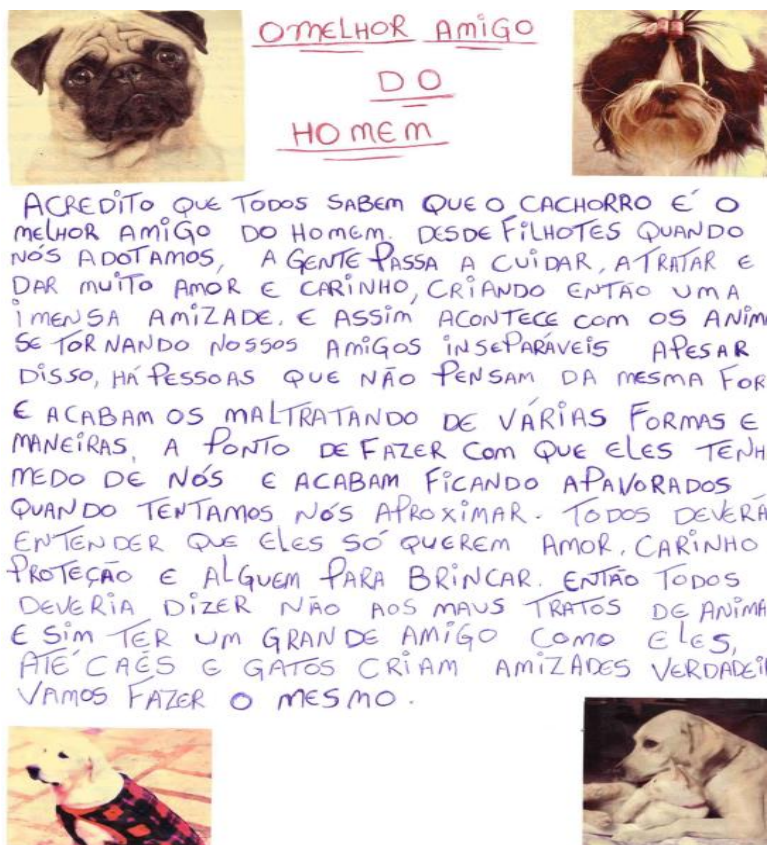 OMELHOR AMIGO
DO
HOMEM
ACREDITO QUE TODOS SABEM QUE O CACHORRO É O
MELHOR AMIGO DO HOMEM. DESDE FILHOTES QUANDO
NÓS ADOTAMOS, A GENTE PASSA A CUIDAR, A TRATAR E
DAR MUITO AMOR E CARINHO, CRIANDO ENTÃO UMA
IMENSA AMIZADE. E ASSIM ACONTECE COM OS ANIM
SE TORNANDO NOSSOS AMIGOS INSEPARÁVEIS APESAR
DISSO, HÁ PESSOAS QUE NÃO PENSAM DA MESMA FOR
E ACABAM OS MALTRATANDO DE VÁRIAS FORMAS E
MANEIRAS, A PONTO DE FAZER COM QUE ELES TENH
MEDO DE NÓS E ACABAM FICANDO APAVORADOS
QUANDO TENTAMOS NÓS APROXIMAR. TODOS DEVERÃ
ENTENDER QUE ELES SÓ QUEREM AMOR, CARINHO
PROTEÇÃO E ALGUEM PARA BRINCAR. ENTÃO TODOS
DEVERIA DIZER NÃO AOS MAUS TRATOS DE ANIMA
E SIM TER UM GRANDE AMIGO COMO ELES,
ATÉ CAÉS E GATOS CRIAM AMIZADES VERDADEIR
VAMOS FAZER O MESMO.